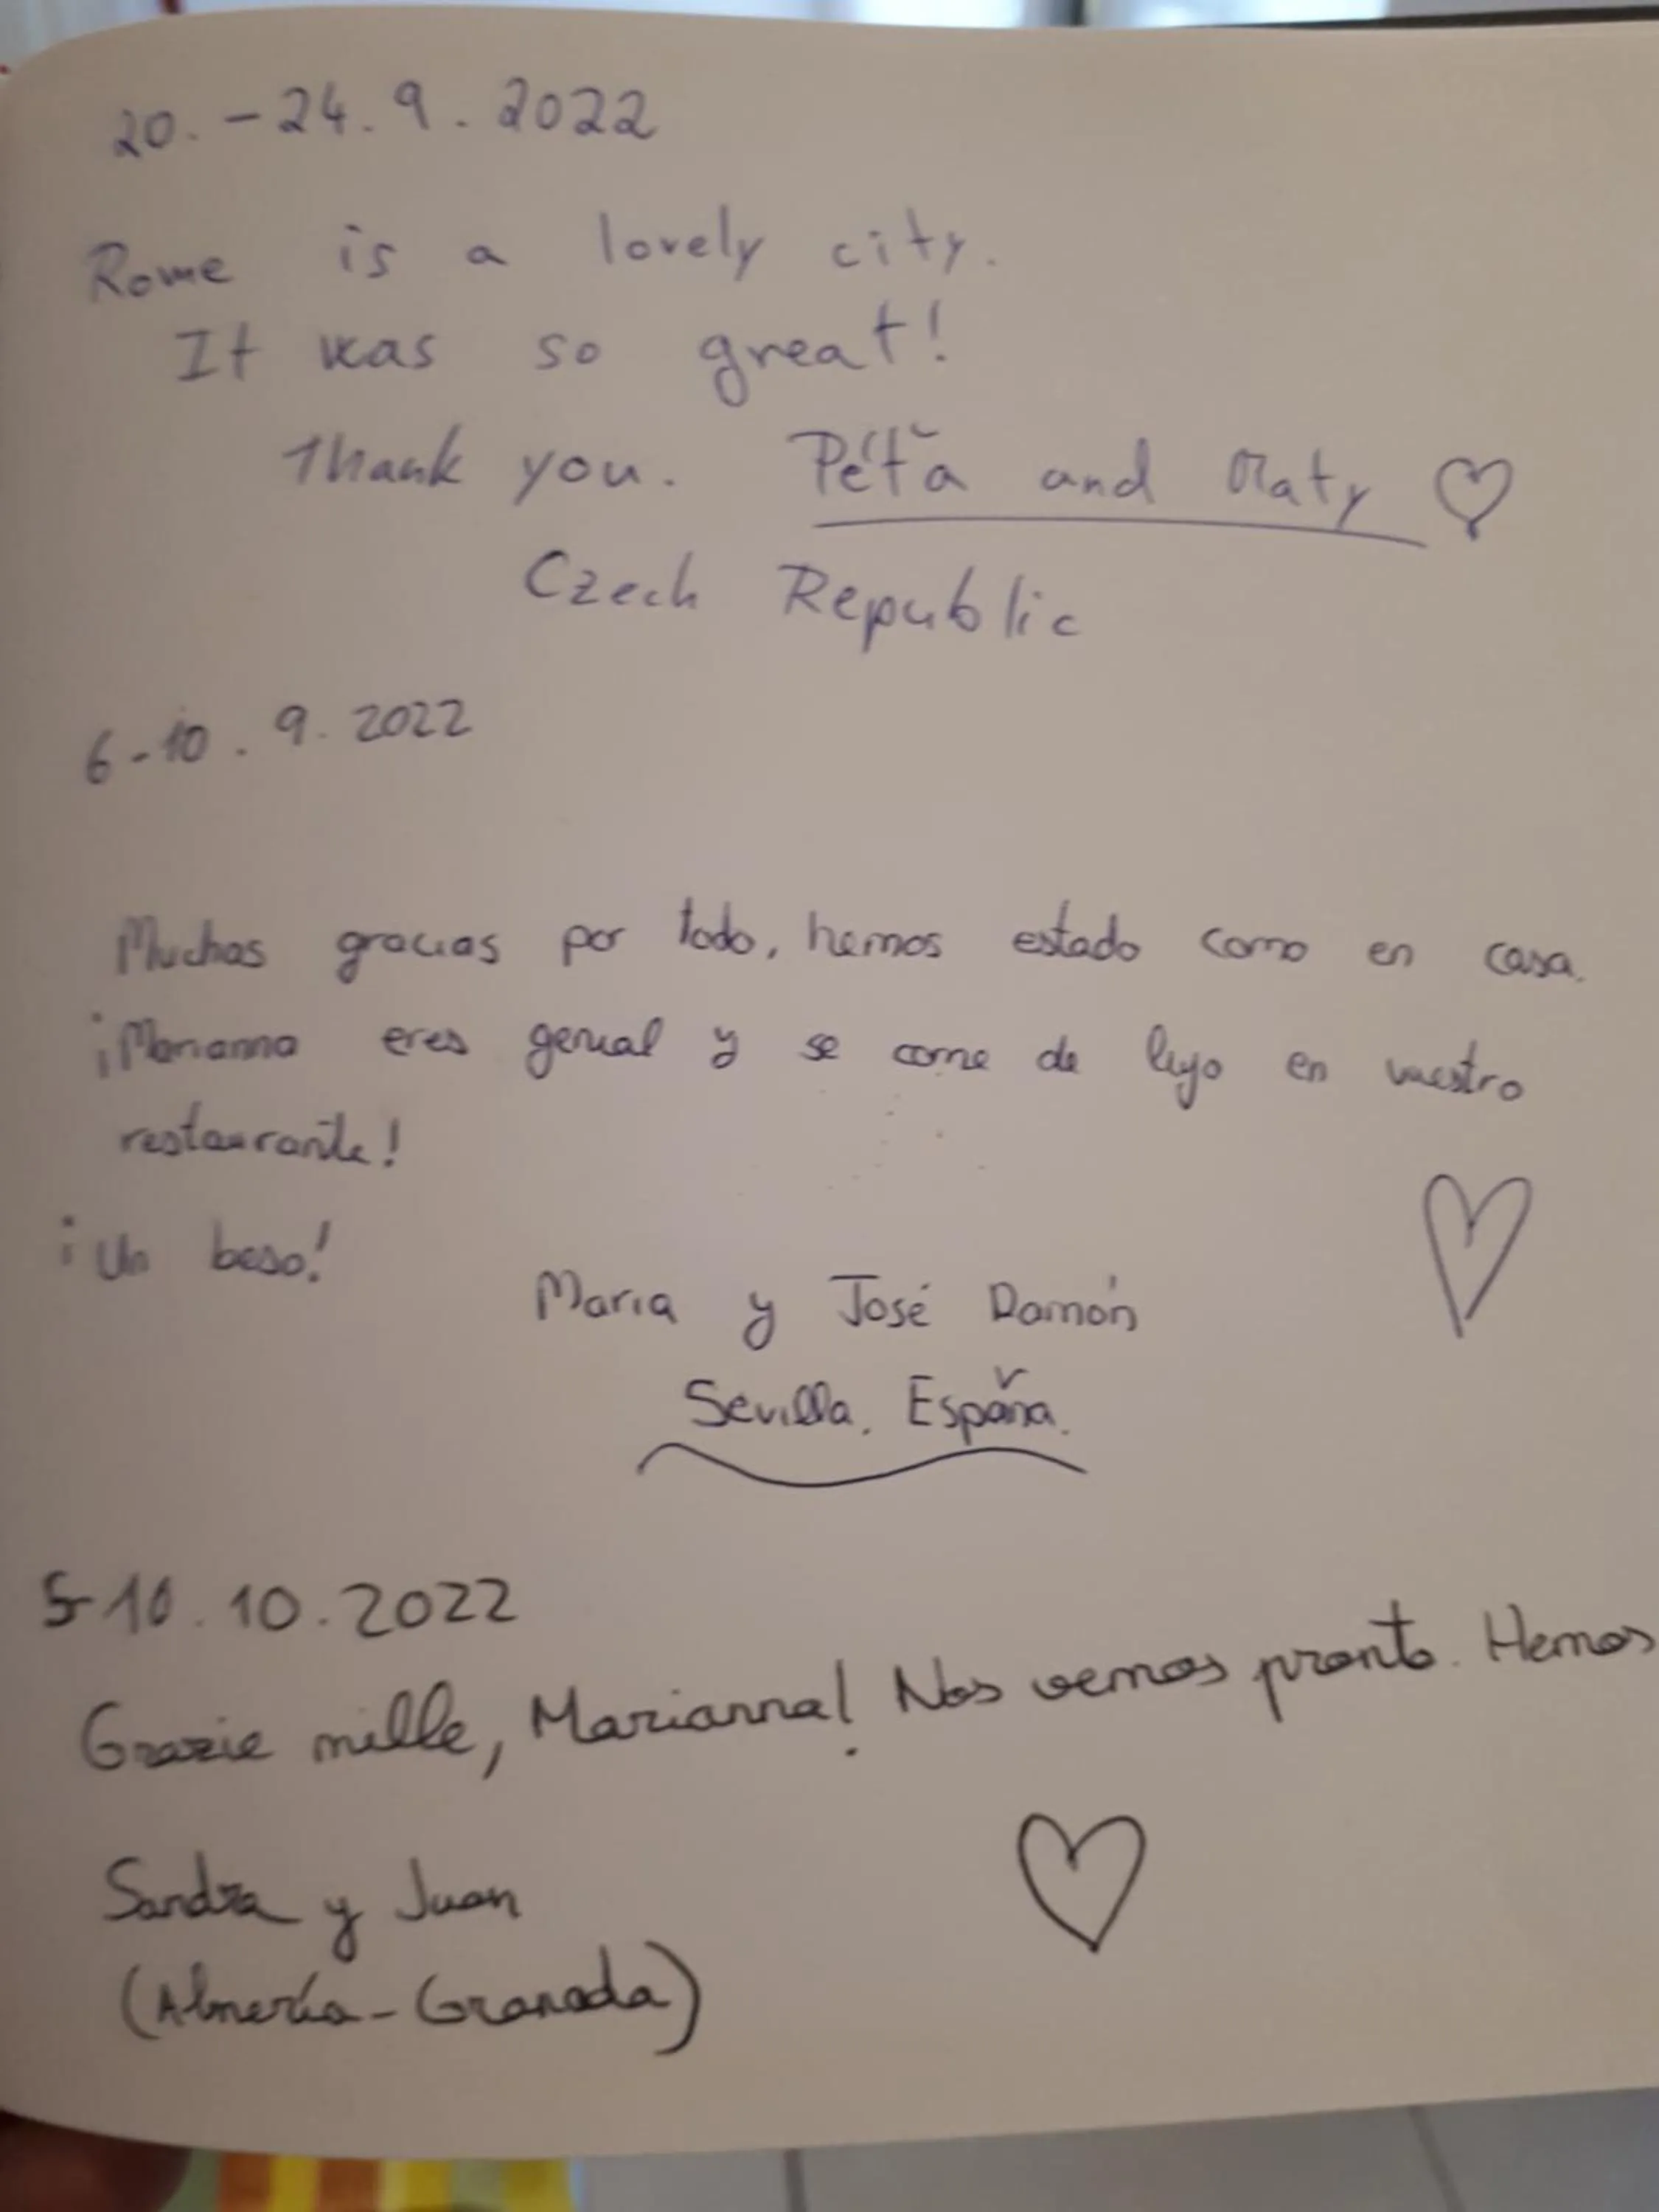 20. - 24. 9. 2022
Rome is a lovely city.
It was so great!
Thank you. Péťa and Maty ♡
Czech Republic
6-10. 9. 2022
Muchas gracias por todo, hemos estado como en casa.
¡Marianna eres genial y se come de lujo en vuestro
restaurante!
¡Un beso!
María y José Ramón
Sevilla. España.
5-10.10.2022
Grazie mille, Marianna! Nos vemos pronto. Hemos
Sandra y Juan
(Almería-Granada)